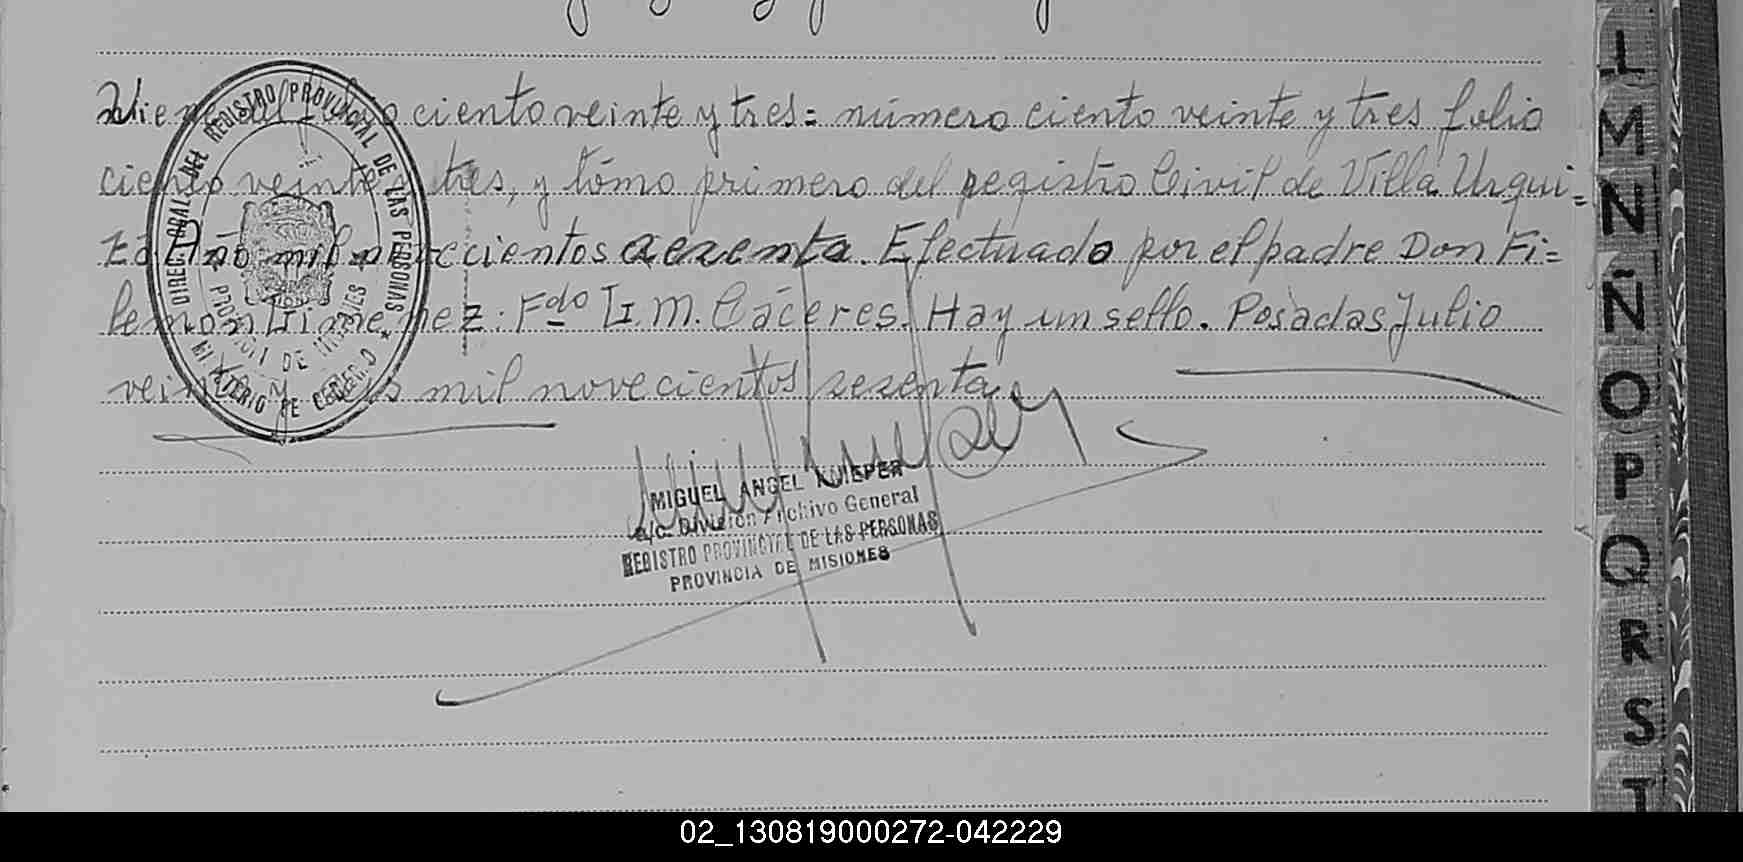 Viene del folio ciento veinte y tres= número ciento veinte y tres folio
ciento veinte y tres, y tómo primero del registro Civil de Villa Urqui=
za Año mil novecientos sesenta. Efectuado por el padre Don Fi=
lemon Gimenez: Fdo G. M. Cáceres. Hay un sello. Posadas Julio
veinte y seis mil novecientos sesenta
DIREC. GRAL. DEL REGISTRO PROVINCIAL DE LAS PERSONAS *
PROVINCIA DE MISIONES
MIGUEL ANGEL KUIEPER
a/c. División Archivo General
REGISTRO PROVINCIAL DE LAS PERSONAS
PROVINCIA DE MISIONES
L
M
N
Ñ
O
P
Q
R
S
T
02_130819000272-042229